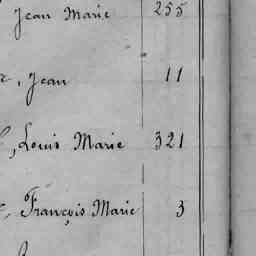 Jean Marie 255
, Jean 11
, Louis Marie 321
, François Marie 3